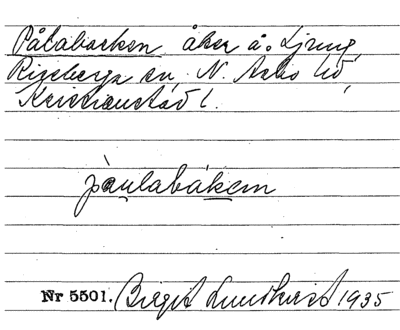 Pålabacken, åker å. Ljung,
Riseberga sn, N. Åsbo hd,
Kristianstad l.
pàulabákem
Nr 5501. Birgit Lundkvist 1935